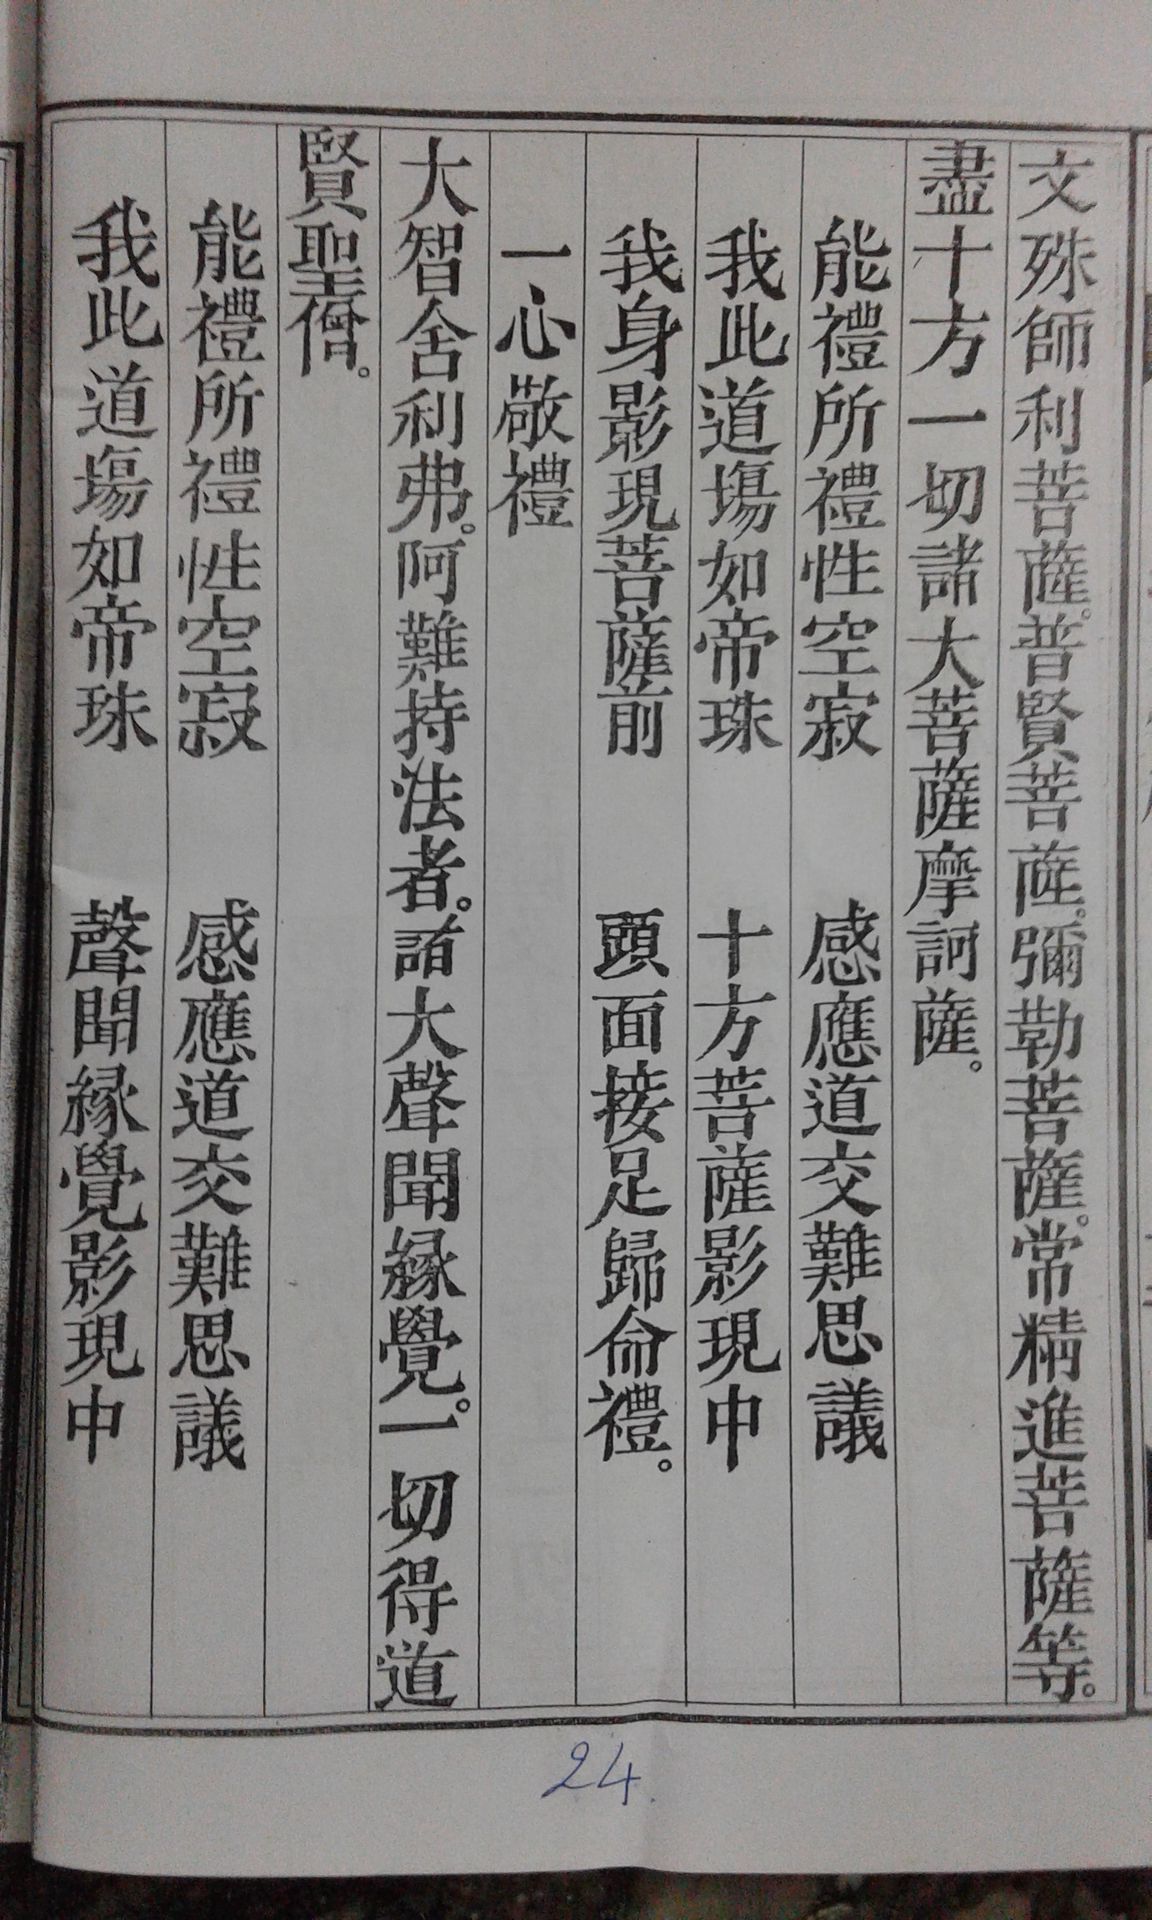 文殊師利菩薩。普賢菩薩。彌勒菩薩。常精進菩薩等。
盡十方一切諸大菩薩摩訶薩。
能禮所禮性空寂　感應道交難思議
我此道塲如帝珠　十方菩薩影現中
我身影現菩薩前　頭面接足歸命禮。
一心敬禮
大智舍利弗。阿難持法者。諸大聲聞緣覺。一切得道
賢聖僧。
能禮所禮性空寂　感應道交難思議
我此道塲如帝珠　聲聞緣覺影現中
24.